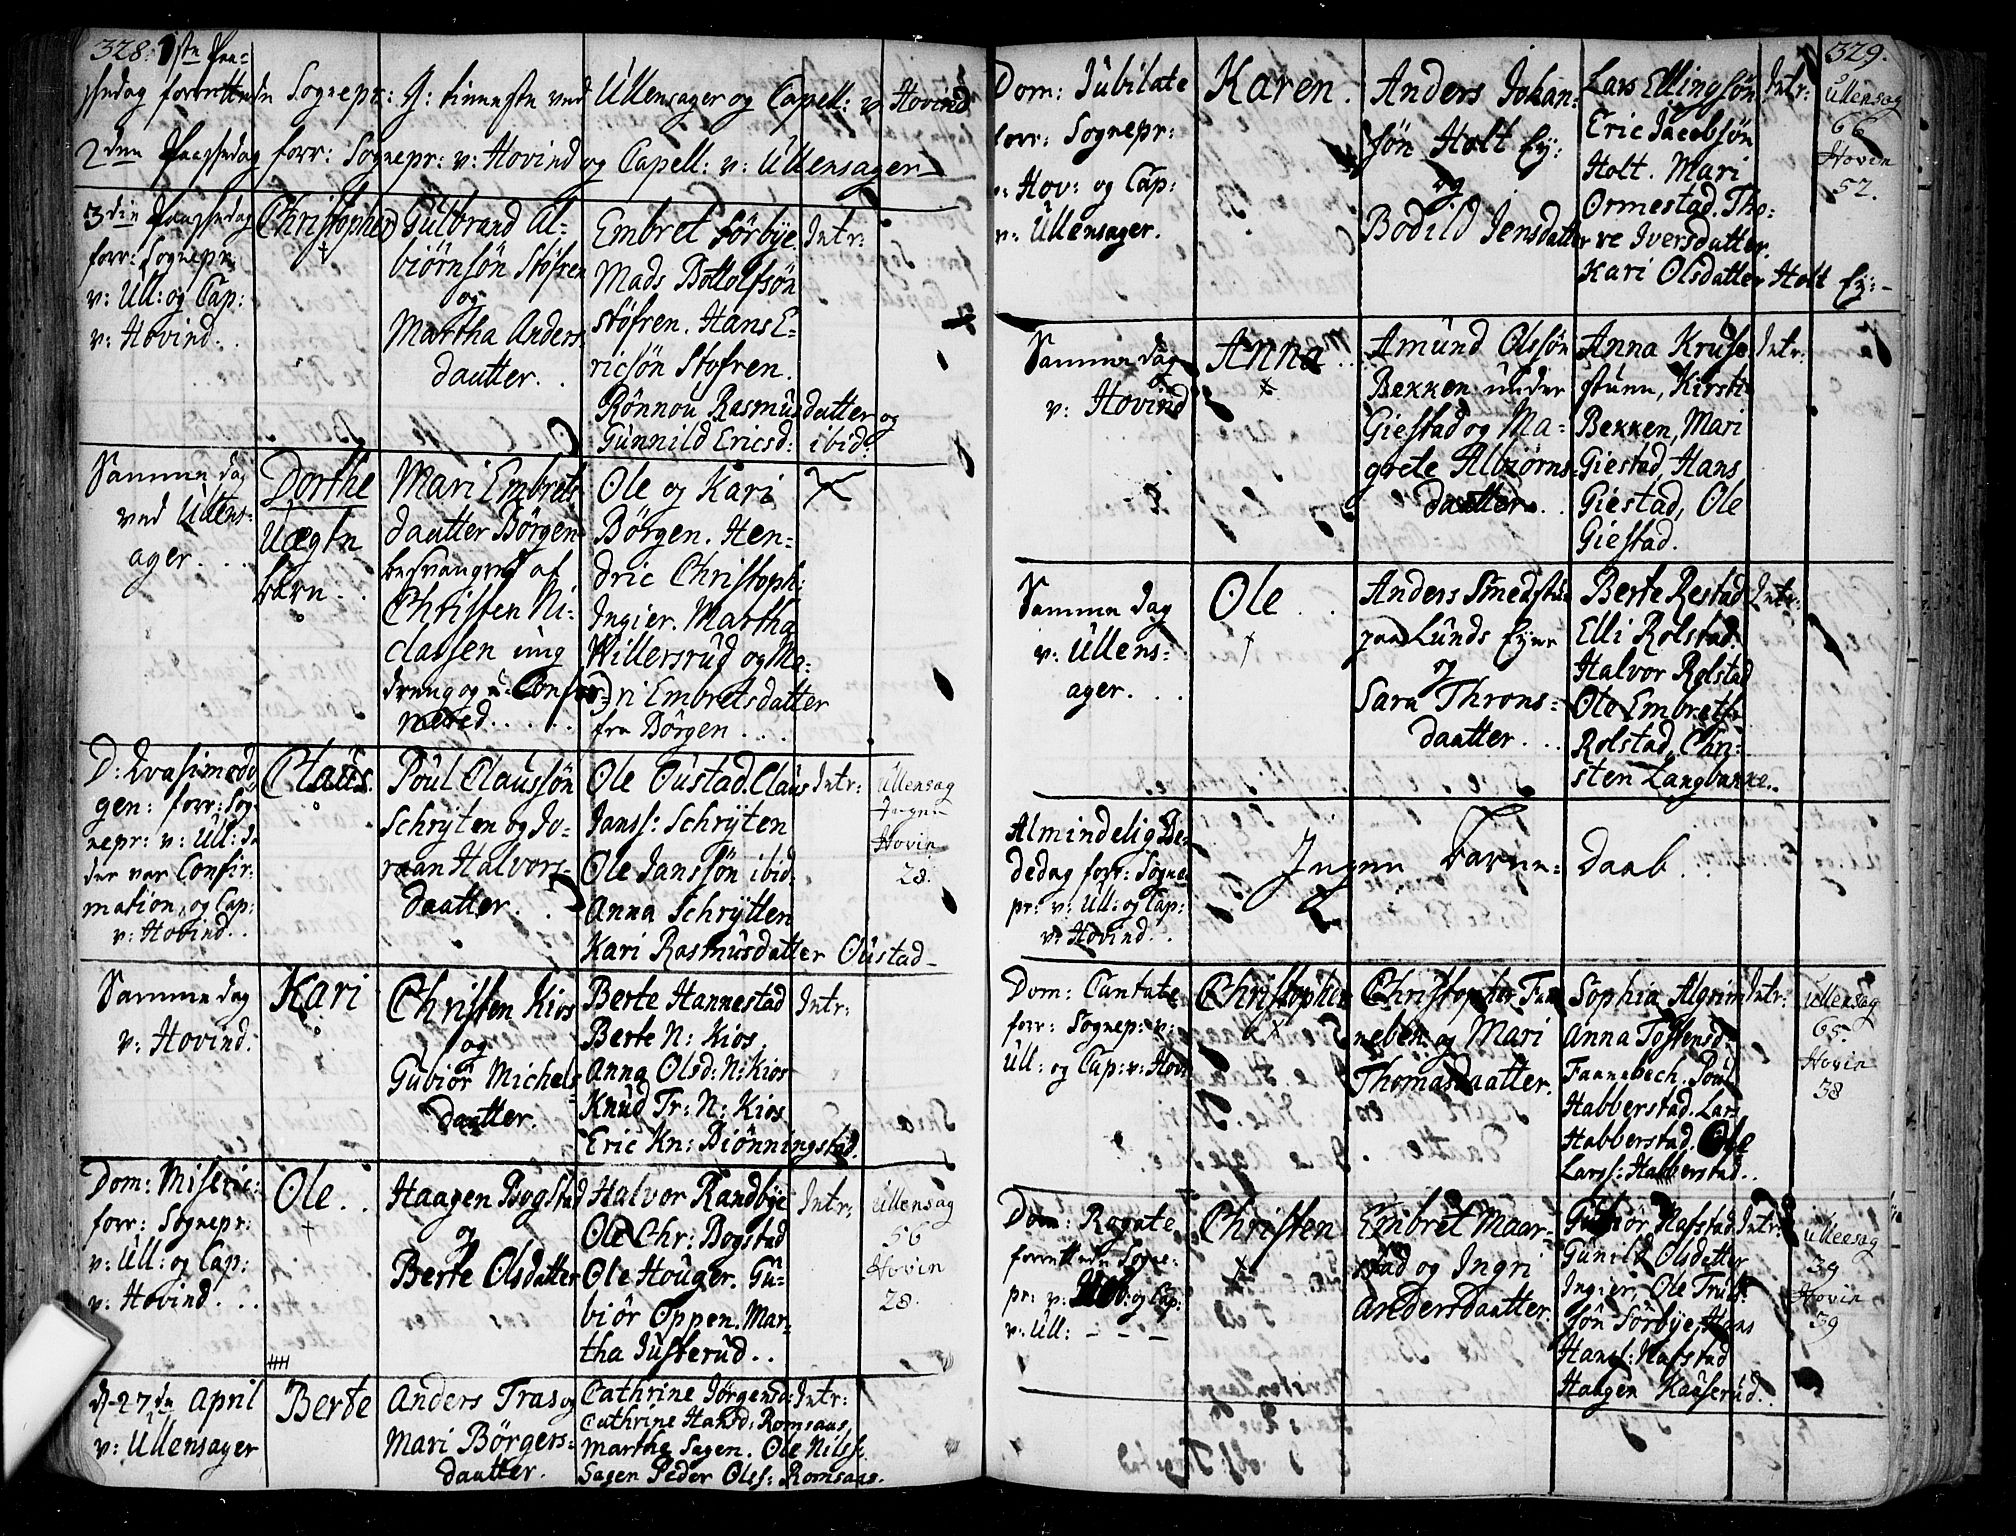 328. 1ste Paa-
skedag forrettede Sognepr: Hr: tienneste ved Ullensager og Capell: v: Hovind
2den Paaskedag forr: Sognepr: v: Hovind og Capell: v: Ullensager
3die Paaskedag
forr: Sognepr:
v: Ull: og Cap:
v: Hovind.
Christopher
Gulbrand Al-
biørnsøn Stofren
og
Martha Anders
daatter.
Embret Sørbye
Mads Bottolfsøn
Stofren. Hans E-
ricsøn Stofren.
Rønnou Rasmusdatter og
Gunnild Ericsd: ibid:
Intr:
Samme dag
ved Ullens-
ager.
Dorthe
Uægte
barn.
Mari Embrets
daatter Børgen
besvangret af
Christen Ni-
classen ung
dreng og u-Confir-
mered.
Ole og Kari
Børgen. Hen-
dric Christoph:
Ingier. Martha
Willersrud og Ma-
ri Embretsdatter
fra Børgen
D: Qvasimodo
gen: forr: Sog-
nepr: v: Ull: da
der var Confir-
mation, og Cap:
v: Hovind.
Claus.
Poul Claussøn
Schryten og Jo-
raan Halvors-
daatter.
Ole Oustad. Claus
Janss: Schryten
Ole Janssøn ibid:
Anna Schrytten
Kari Rasmusdatter Oustad
Intr:
Ullensag
Ingen
Hovin
28.
Samme dag
v: Hovind.
Kari
Christen Kios
og
Gubiør Michels
daatter.
Berte Hannestad
Berte N: Kios
Anna Olsd: N: Kios
Knud Tr: N: Kios
Eric Kn: Biønningstad.
Intr:
Dom: Miseric:
forr: Sognepr:
v: Ull: og Cap:
v: Hovind.
Ole.
Haagen Bogstad
og
Berte Olsdatter
Halvor Randbye
Ole Chr: Bogstad
Ole Houger. Gu-
biør Oppen. Mar-
tha Justerud.
Intr:
Ullensag
56
Hovin
28.
d. 27de April
v: Ullensager
Berte
Anders Tras og
Mari Børgers-
daatter.
Cathrine Jørgensd:
Cathrine Hansd: Romsaas
Marthe Sagen. Ole Nilss:
Sagen Peder Olss: Romsaas.
Intr:
329.
Dom: Jubilate
forr: Sognepr:
v: Hov: og Cap:
v: Ullensager.
Karen.
Anders Johan-
søn Holt Ey:
og
Bodild Jensdatter
Lars Ellingsøn
Eric Jacobsøn
Holt. Mari
Ormestad. Tho-
re Iversdatter.
Kari Olsdatter Holt Ey:
Intr:
Ullensag
66
Hovin
52.
Samme dag
v: Hovind
Anna
Amund Olssøn
Bekken under
Giestad og Ma-
grete Albiørns-
daatter.
Anna Kruse
stuen, Kirsti
Bekken, Mari
Giestad, Hans
Giestad, Ole
Giestad.
Intr:
Samme dag
v: Ullens-
ager.
Ole
Anders Smedstue
paa Lunds Eyer
og
Sara Throns-
daatter.
Berte Restad
Elli Rolstad
Halvor Rolstad
Ole Embretss:
Rolstad, Chri-
sten Langbakke.
Intr:
Almindelig Be-
dedag forr: Sogne
pr: v: Ull: og Cap:
v: Hovind.
Ingen Barne-daab
Dom: Cantate
forr: Sognep: v:
Ull: og Cap: v: Hov:
Christopher
Christopher Fan
neben og Mari
Thomasdaatter.
Sophia Algrim
Anna Tostensd:
Fannebech. Poul
Habberstad. Lars
Habberstad. Ole
Larss: Habberstad.
Intr:
Ullensag
65
Hovin
38
Dom: Rogate
forrettede Sogne-
pr: v: Hov: og Cap:
v: Ull:
Christen
Embret Maar-
stad og Ingri
Andersdaatter.
Gubiør Nafstad
Gunild Olsdatter
Ingier, Ole Truls-
søn Sørbye, Hans
Hanss: Nafstad
Haagen Kauserud.
Intr:
Ullensag
39
Hovin
39